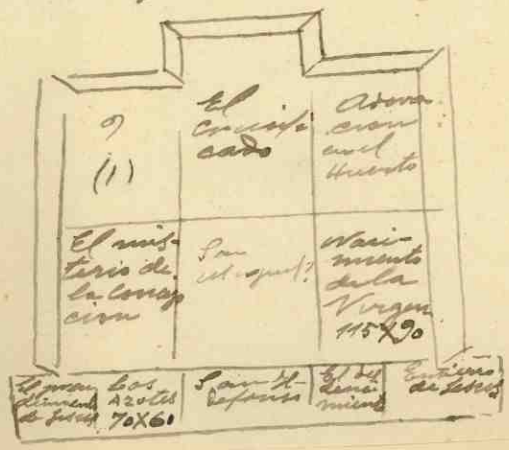 ?
(1)
El
crucifi
cado
Adora-
cion
en el
Huerto
El mis-
terio de
la Encarna
cion
San
Miguel?
Naci-
miento
de la
Virgen
115X90
El pren
dimiento
de Jesus
Los
Azotes
70X61
San Il-
defonso
El des
cendi-
miento
Entierro
de Jesus